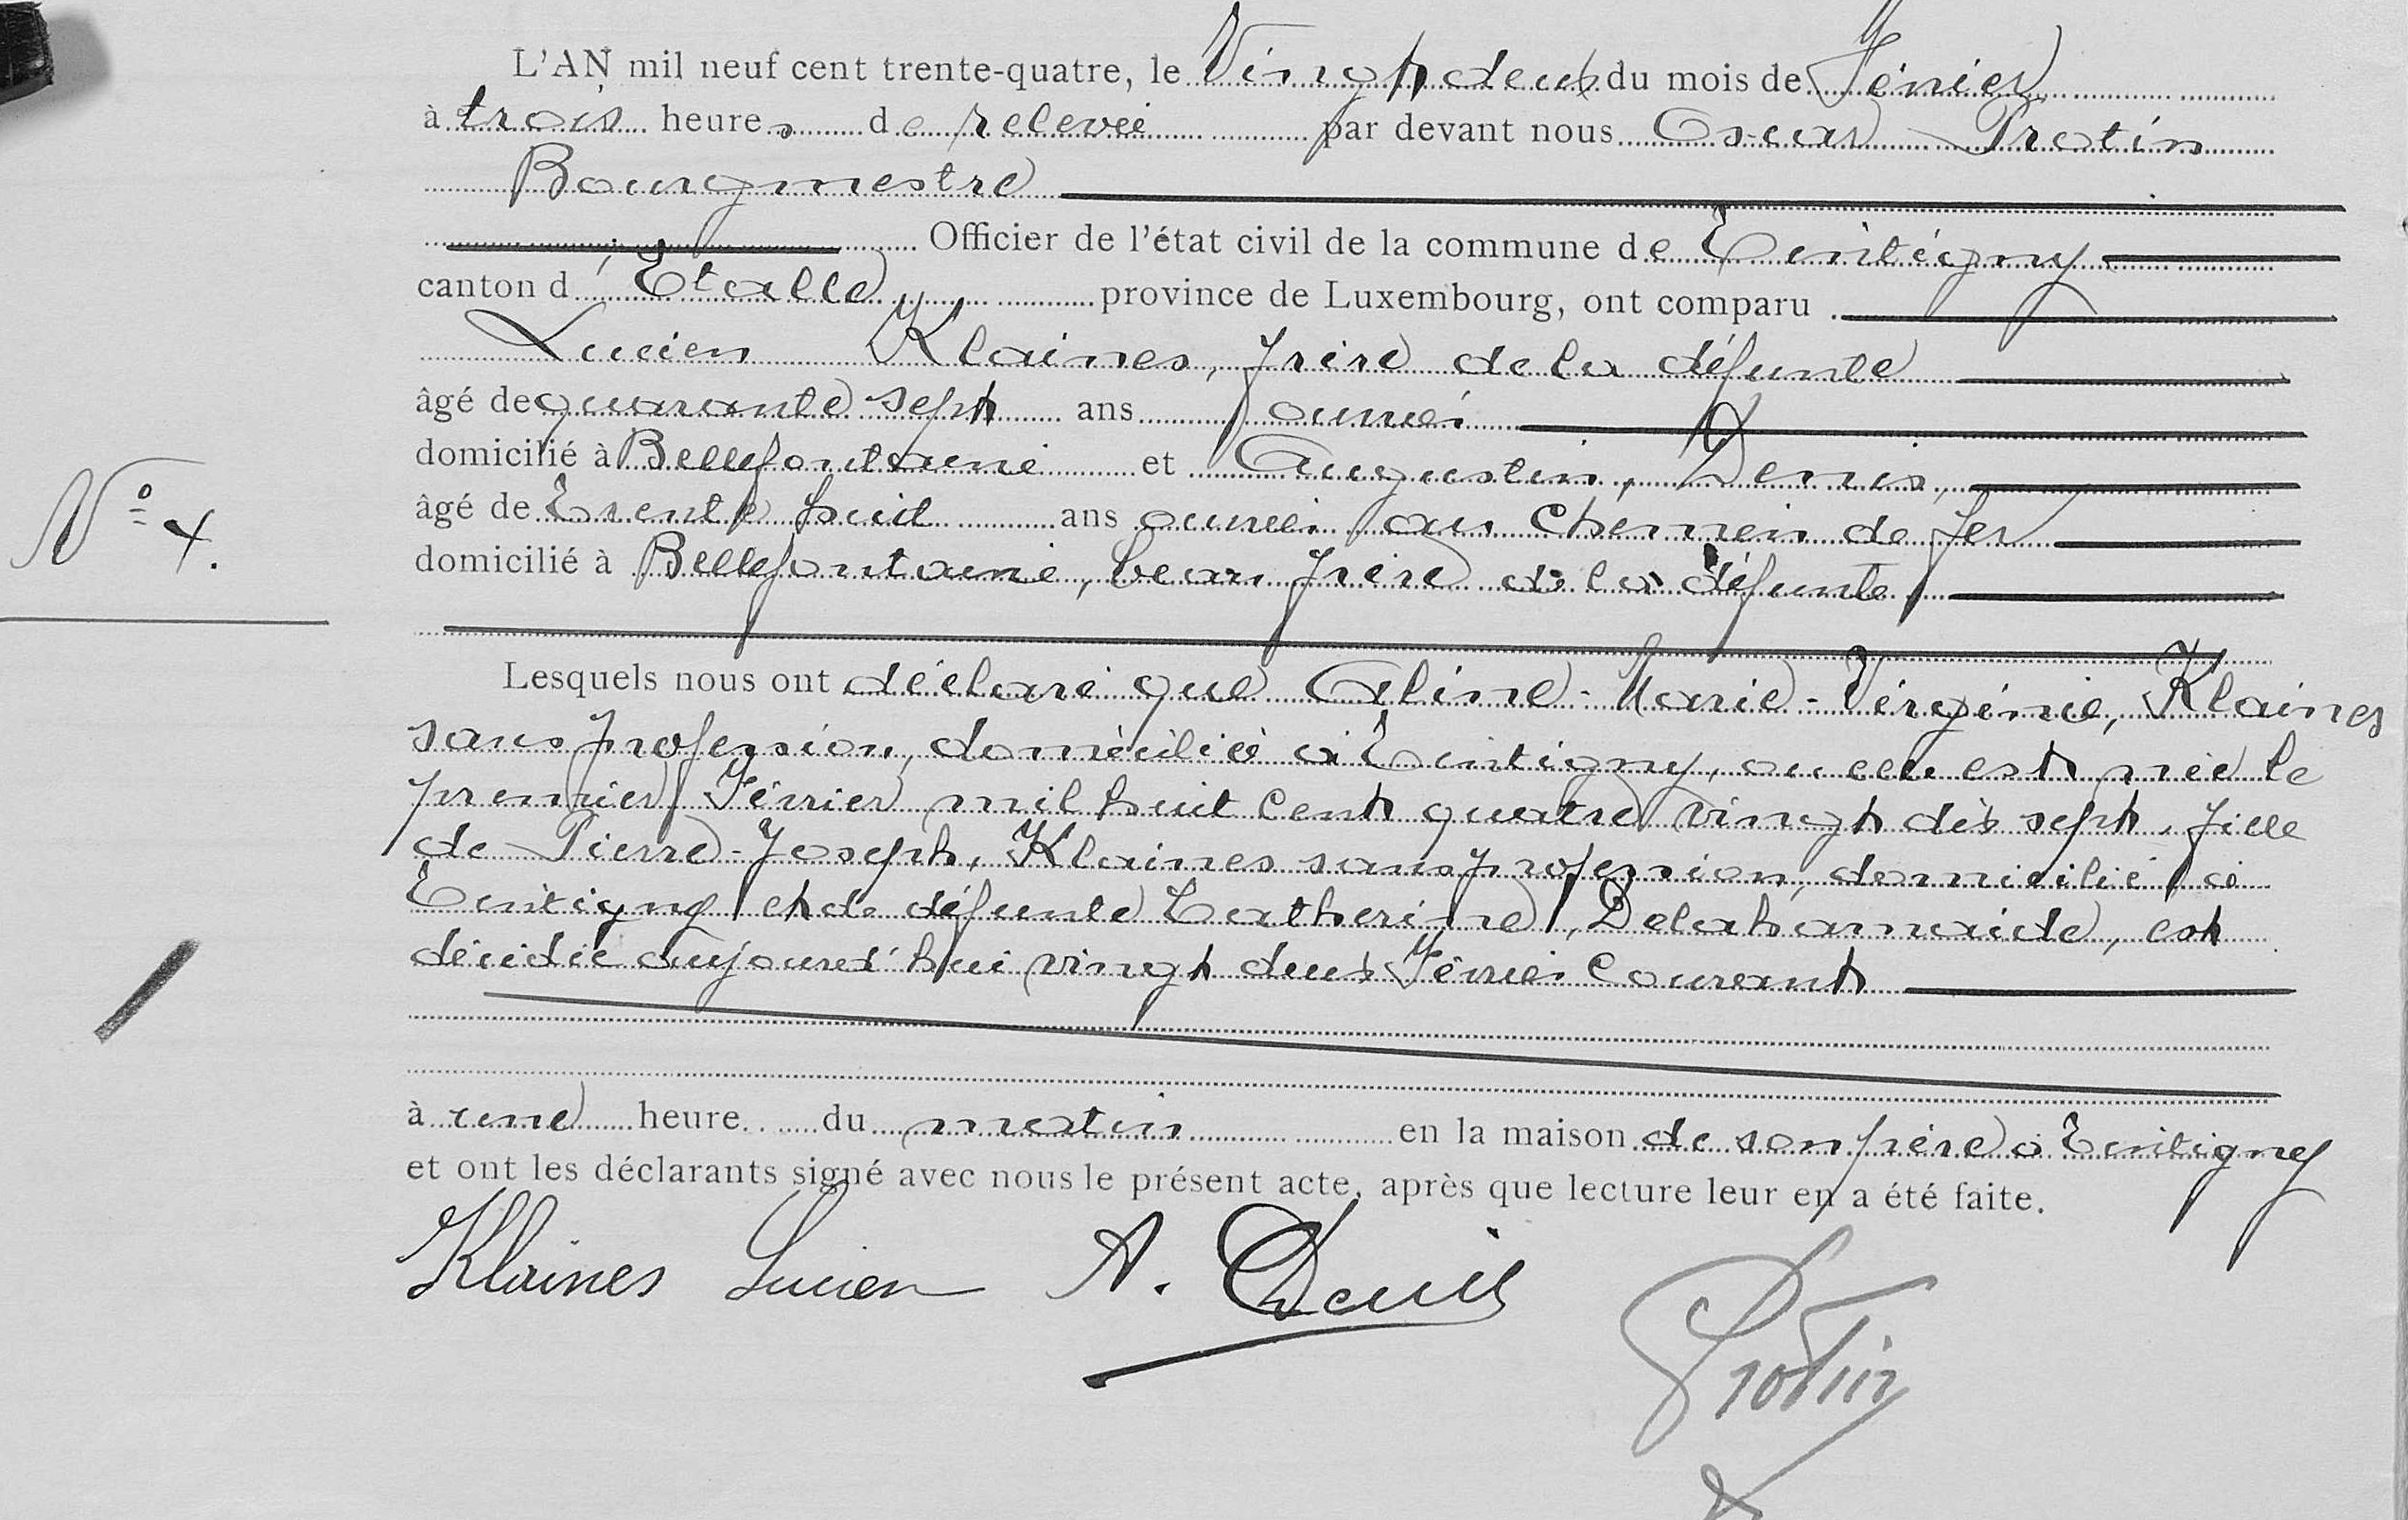 L'AN mil neuf cent trente-quatre, le Vingt deux du mois de Février
à trois heures de relevée par devant nous Oscar Protin
Bourgmestre
Officier de l'état civil de la commune de Tintigny
canton d'Etalle province de Luxembourg, ont comparu
Lucien Klaines, frère de la défunte
âgé de quarante sept ans ouvrier
domicilié à Bellefontaine et Augustin, Denis,
âgé de Trente huit ans ouvrier au chemin de fer
domicilié à Bellefontaine, beau frère de la défunte
Lesquels nous ont déclaré que Aline-Marie-Virginie, Klaines
sans profession, domiciliée à Tintigny, ou elle est née le
premier Février mil huit cent quatre vingt dix sept, fille
de Pierre-Joseph, Klaines sans profession, domicilié à
Tintigny et de défunte Catherine, Delahamaide, est
décédée aujourd'hui vingt deux Février courant
N° 4.
à une heure du matin en la maison de son père à Tintigny
et ont les déclarants signé avec nous le présent acte, après que lecture leur en a été faite.
Klaines Lucien A. Denis Protin